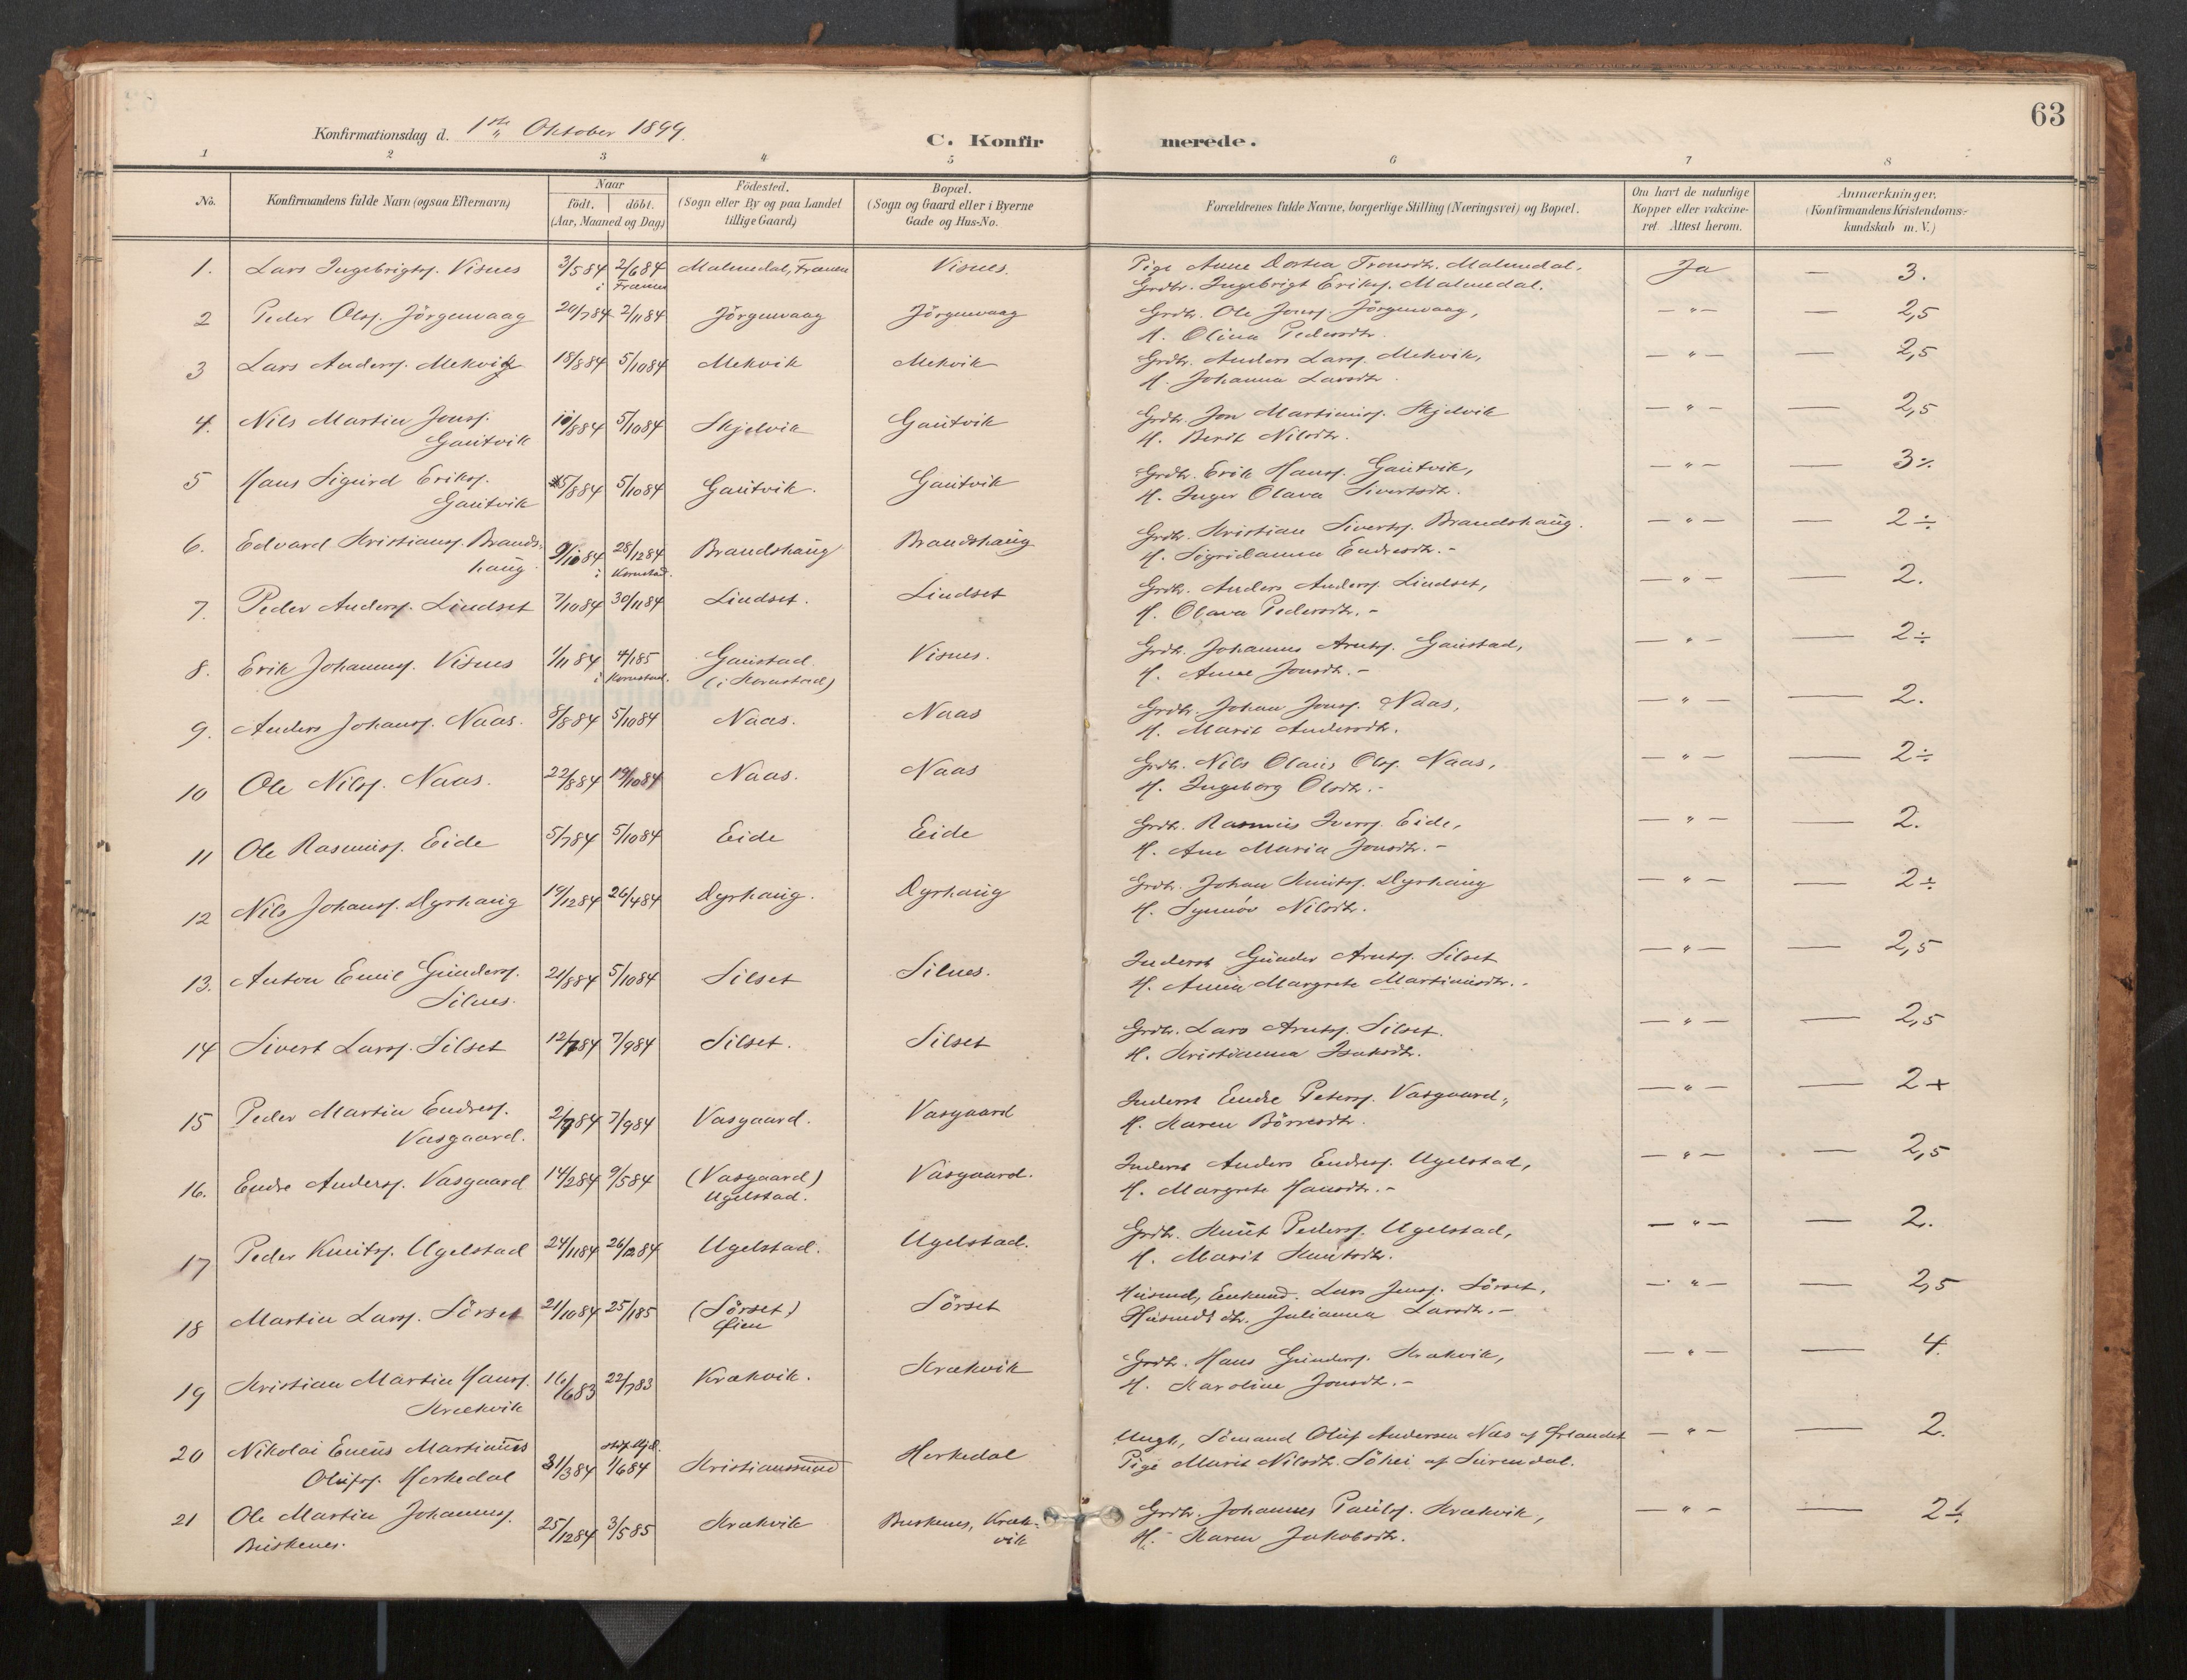 63
Konfirmationsdag d. 1ste Oktober 1899.
C. Konfirmerede.
1 2 3 4 5 6 7 8
No. Konfirmandens fulde Navn (ogsaa Efternavn) Naar født. døbt. (Aar, Maaned og Dag) Födested. (Sogn eller By og paa Landet tillige Gaard) Bopæl. (Sogn og Gaard eller i Byerne Gade og Hus-No. Forældrenes fulde Navne, borgerlige Stilling (Næringsvei) og Bopæl. Om havt de naturlige Kopper eller vakcineret Attest herom. Anmærkninger. (Konfirmandens Kristendomskundskab m. V.)
1. Lars Ingebrigtsf. Visnes 3/5 84 2/6 84 i Frænen Malmedal, Frænen Visnes. Pige Anne Dortea Tronsdtr. Malmedal. Ja — 3.
Grdbr. Ingebrigt Eriksf. Malmedal.
2 Peder Olsf. Jörgenvaag 20/7 84 2/11 84 Jörgenvaag Jörgenvaag Grdbr. Ole Jonsf. Jörgenvaag, — " — — 2,5
H. Olina Pedersdtr.
3 Lars Andersf. Mekvik 18/8 84 5/10 84 Mekvik Mekvik Grdbr. Anders Larsf. Mekvik, — " — — 2,5
H. Johanna Larsdtr.
4. Nils Martin Jonsf. Gautvik /8 84 5/10 84 Skjelvik Gautvik Grdbr. Jon Martinusf. Skjelvik — " — — 2,5
H. Berit Nilsdtr.
5 Hans Sigurd Eriksf. Gautvik /8 84 5/10 84 Gautvik. Gautvik Grdbr. Erik Hansf. Gautvik, — " — — 3÷
H. Inger Olava Sivertsdtr.
6. Edvard Kristiansf. Brandshaug 9/10 84 28/12 84 i Kornstad. Brandshaug Brandshaug Grdbr. Kristian Sivertsf. Brandshaug. — " — — 2÷
H. Sigridanna Endresdtr. -
7. Peder Andersf. Lindset 7/10 84 30/11 84 Lindset. Lindset Grdbr. Anders Andersf. Lindset, — " — — 2.
H. Olava Pedersdtr. -
8. Erik Johannesf. Visnes 1/11 84 4/1 85 i Kornstad. Gaustad. (i Kornstad) Visnes. Grdbr. Johannes Arntsf. Gaustad, — " — — 2÷
H. Anne Jonsdtr. -
9. Anders Johansf. Naas. 8/8 84 5/10 84 Naas. Naas Grdbr. Johan Jonsf. Naas, — " — — 2.
H. Marit Andersdtr.
10 Ole Nilsf. Naas. 22/8 84 19/10 84 Naas. Naas Grdbr. Nils Olaus Olsf. Naas, — " — — 2÷
H. Ingeborg Olsdtr. -
11 Ole Rasmusf. Eide 5/7 84 5/10 84 Eide Eide Grdbr. Rasmus Iversf. Eide, — " — — 2.
H. Ane Maria Jonsdtr. -
12 Nils Johansf. Dyrhaug 19/12 84 26/4 84 Dyrhaug. Dyrhaug Grdbr. Johan Knutsf. Dyrhaug — " — — 2÷
H. Synnöv Nilsdtr.
13. Anton Emil Gundersf. Silnes. 21/8 84 5/10 84 Silset Silnes. Inderst Gunder Arntsf. Silset — " — — 2,5
H. Anna Margrete Martinusdtr. -
14 Sivert Larsf. Silset 12/7 84 7/9 84 Silset. Silset Grdbr. Lars Arntsf. Silset. — " — — 2,5
H. Kristianna Isaksdtr.
15 Peder Martin Endresf. Vasgaard. 2/7 84 7/9 84 Vasgaard. Vasgaard Inderst Endre Petersf. Vasgaard, — " — — 2+
H. Karen Börresdtr.
16. Endre Andersf. Vasgaard 14/2 84 9/5 84 (Vasgaard) Ugelstad. Vasgaard. Inderst Anders Endresf. Ugelstad, — " — — 2,5
H. Margrete Hansdtr. -
17 Peder Knutsf. Ugelstad 24/11 84 26/12 84 Ugelstad. Ugelstad. Grdbr. Knut Pedersf. Ugelstad, — " — — 2.
H. Marit Knutsdtr.
18 Martin Larsf. Sörset 21/10 84 25/1 85 (Sörset) Øien Sörset Husmd, Enkemd. Lars Jensf. Sörset, — " — — 2,5
Husmds dtr. Julianna Larsdtr. -
19 Kristian Martin Hansf. Krækvik 16/6 83 22/7 83 Krækvik. Krækvik Grdbr. Hans Gundersf. Krækvik, — " — — 4.
H. Karoline Jonsdtr. -
20 Nikolai Eneus Martinus Olufsf. Herkedal 31/3 84 1/6 84 Kristianssund Herkedal Ungk, Sömand Oluf Andersen Næs af Ørlandet — " — — 2.
Pige Marit Nilsdtr. af Surendal.
21 Ole Martin Johannesf. Buskenes. 25/12 84 3/5 85 Krækvik Buskenes, Krækvik Grdbr. Johannes Paulsf. Krækvik, — " — — 2÷
H. Karen Jakobsdtr.